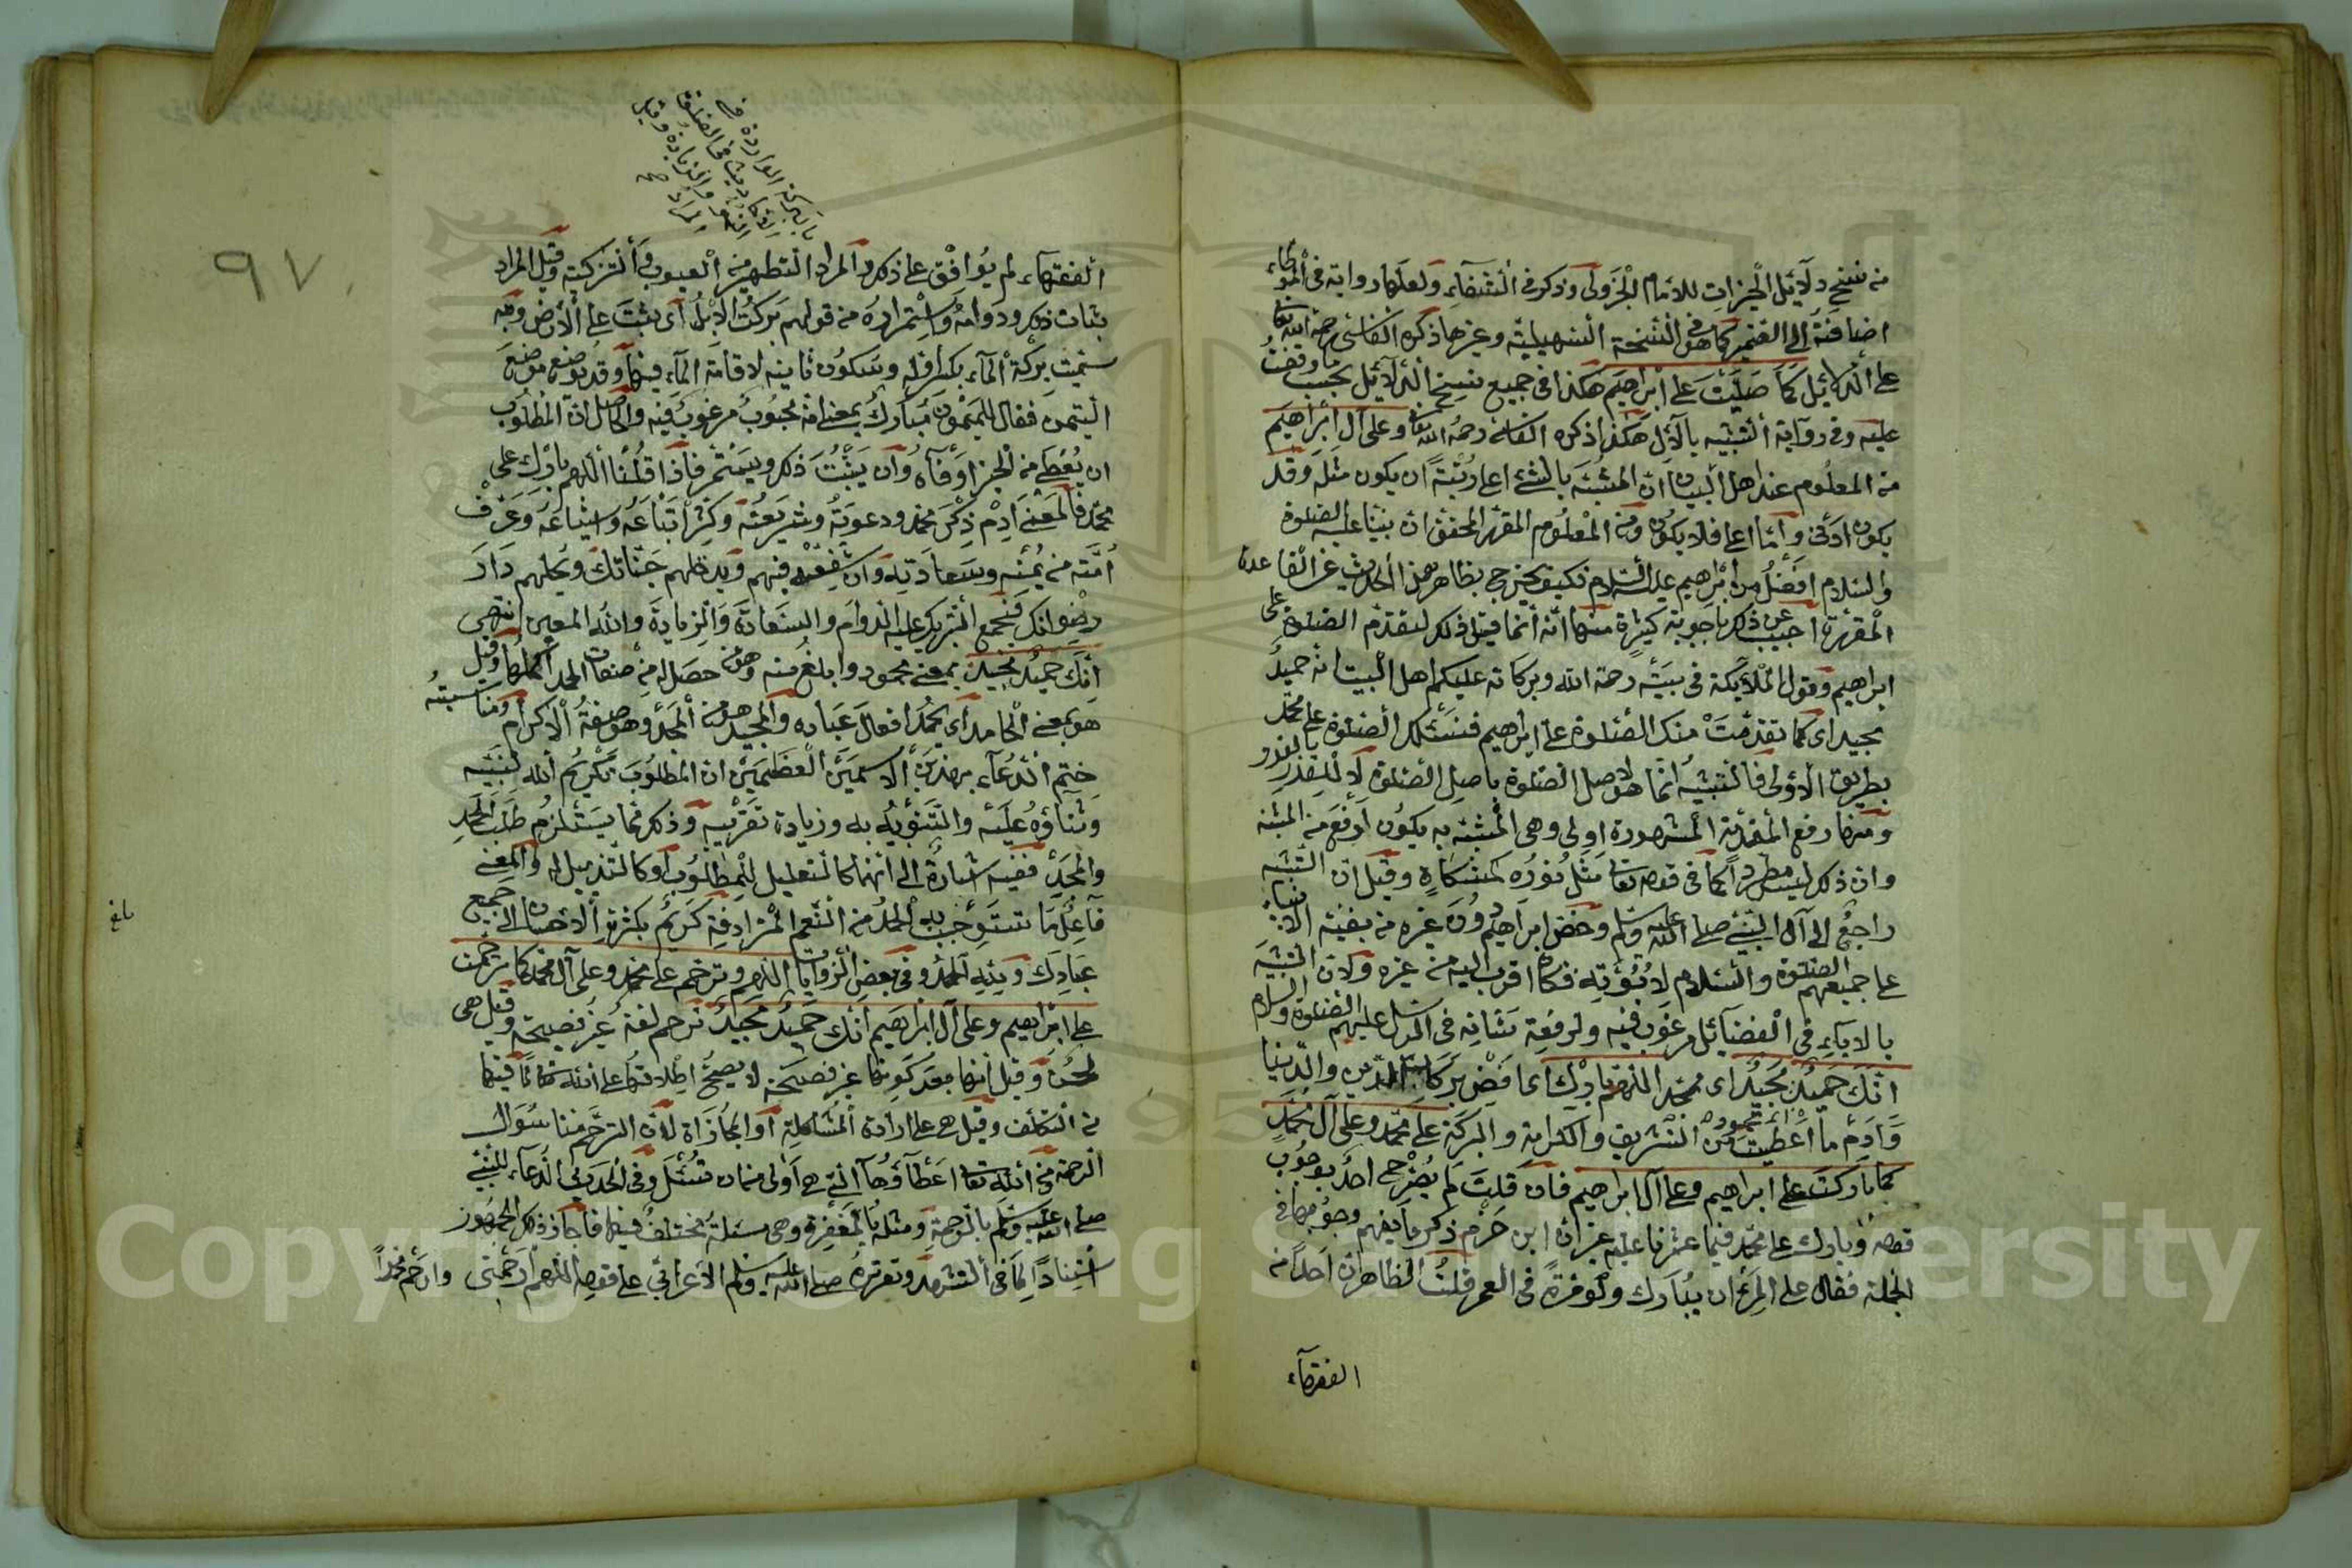 من نسخ دلائل الخيرات للامام الجزولى وذكر فى الشفاء ولعلها رواية فى الموطاء
اضافته الى الضمير كما هو فى النسخة السهيلية وغيرها ذكره الفاسى رحمه الله تعا
على الدلائل كما صليت على ابراهيم هكذا فى جميع نسخ الدلائل بحسب ما وقفت
عليه وفى رواية التشبيه بالآل هكذا ذكره الفاسى رحمه الله تعا وعلى آل ابراهيم
من المعلوم عند اهل البيان ان المشبه بالشئ اعلا رتبة ان يكون مثله وقد
يكون ادنى واما اعلا فلا يكون ومن المعلوم المقرر المحقق ان نبينا عليه الصلوة
والسلام افضل من ابراهيم عليه السلام فكيف يخرج بظاهر هذا الحديث عن القاعدة
المقررة اجيب عن ذلك باجوبة كثيرة منها انه انما قيل ذلك لتقدم الصلوة على
ابراهيم وقول الملائكة فى بيته رحمة الله وبركاته عليكم اهل البيت انه حميد
مجيد اى كما تقدمت منك الصلوة على ابراهيم فنسئلك الصلوة على محمد
بطريق الاولى فالتشبيه انما هو لاصل الصلوة باصل الصلوة لا للقدر بالقدر
ومنها رفع المقدمة المشهورة اولى وهى المشبه به يكون ارفع من المشبه
وان ذلك ليس مطردا كما فى قوله تعا مثل نوره كمشكاة وقيل ان التشبيه
راجع الى آل النبى صلى الله عليه وسلم وخص ابراهيم دون غيره من بقية الانبياء
على جميعهم الصلوة والسلام لابوته فكان اقرب اليه من غيره ولان التشبيه
بالاباء فى الفضائل مرغوب فيه ولرفعة شانه فى الرسل عليهم الصلوة والسلام
انك حميد مجيد اى محمد اللهم بارك اى افض بركات الدين والدنيا
وادم ما اعطيت من التشريف والكرامة والبركة على محمد وعلى آل محمد
كما باركت على ابراهيم وعلى آل ابراهيم فان قلت لم يصرح احد بوجوب
قوله وبارك على محمد فيما عثرنا عليه غير ان ابن حزم ذكر ما يفهم وجوبها فى
الجملة فقال على المرء ان يبارك ولو مرة فى العمر قلت الظاهر ان احدا من
الفقهاء
٩٧
الفقهاء لم يوافق على ذلك والمراد التطهير من العيوب والتزكية وقيل المراد
ثبات ذلك ودوامه واستمراره من قولهم بركت الابل اى ثبت على الارض وبه
سميت بركة الماء بكسر اوله وسكون ثانيه لاقامة الماء فيها وقد توضع موضع
اليمن فقال للميمون مبارك بمعنى انه محبوب مرغوب فيه والحاصل ان المطلوب
ان يعطى من الخير اوفاه وان يثبت ذلك ويستمر فاذا قلنا اللهم بارك على
محمد فالمعنى ادم ذكر محمد ودعوته وشريعته وكثر اتباعه واشياعه وعرف
امته من يمنه وسعادته وان شفعه فيهم ويدخلهم جناتك ويحلهم دار
رضوانك فيجمع التبريك عليه الدوام والسعادة والزيادة والله المعين انتهى
انك حميد مجيد بمعنى محمود وابلغ منه وهو من حصل له من صفات الحمد اكملها وقيل
هو بمعنى الحامد اى يحمد افعال عباده والمجيد هو من المجد وهو صفة الاكرام ومناسبته
ختم الدعاء بهذين الاسمين العظيمين ان المطلوب تكريم الله لنبيه
وثناؤه عليه والتنويه به وزيادة تقريبه وذلك مما يستلزم طلب الحمد
والمجد ففيه اشارة الى انهما كالتعليل للمطلوب او كالتذييل له والمعنى
فاعل ما تستوجب به الحمد من النعم المترادفة كريم بكثرة الاحسان الى جميع
عبادك ولله الحمد وفى بعض الروايات اللهم وترحم على محمد وعلى آل محمد كما ترحمت
على ابراهيم وعلى آل ابراهيم انك حميد مجيد ترحم لغة غير فصيحة وقيل هى
لحن وقيل انها بعد كونها غير فصيحة لا يصح اطلاقها على الله تعا لما فيها
من التكلف وقيل هى على ارادة المشاكلة او المجازاة لان الترحم منا سؤال
الرحمة من الله تعا اعطاؤها التى هى اولى من ان تسئل وفى الحديث الدعاء للنبى
صلى الله عليه وسلم بالرحمة ومثله بالمغفرة وهى مسئلة مختلف فيها فاجاز ذلك الجمهور
استنادا لما فى التشهد وتقريره صلى الله عليه وسلم الاعرابى على قوله اللهم ارحمنى وارحم محمدا
بلغ